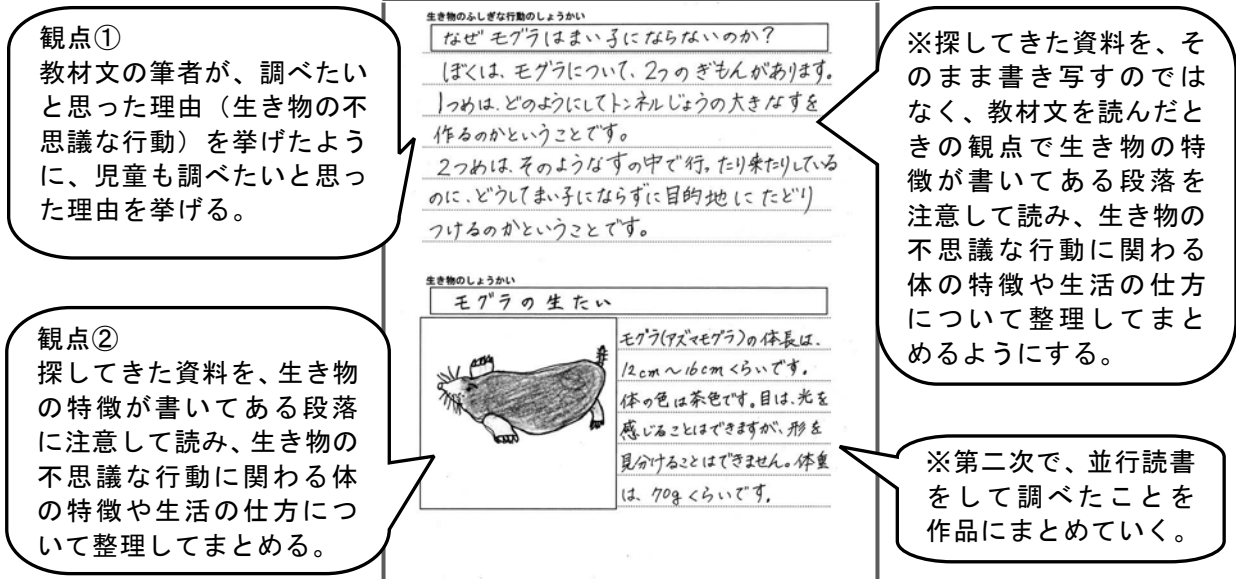 観点①
教材文の筆者が、調べたい
と思った理由（生き物の不
思議な行動）を挙げたよう
に、児童も調べたいと思っ
た理由を挙げる。
観点②
探してきた資料を、生き物
の特徴が書いてある段落
に注意して読み、生き物の
不思議な行動に関わる体
の特徴や生活の仕方につ
いて整理してまとめる。
生き物のふしぎな行動のしょうかい
なぜモグラはまい子にならないのか？
ぼくは、モグラについて、2つのぎもんがあります。
1つめは、どのようにしてトンネルじょうの大きなすを
作るのかということです。
2つめは、そのようなすの中で行ったり来たりしている
のに、どうしてまい子にならずに目的地にたどり
つけるのかということです。
生き物のしょうかい
モグラの生たい
モグラ(アズマモグラ)の体長は、
12cm～16cmくらいです。
体の色は茶色です。目は、光を
感じることはできますが、形を
見分けることはできません。体重
は、70gくらいです。
※探してきた資料を、そ
のまま書き写すのでは
なく、教材文を読んだと
きの観点で生き物の特
徴が書いてある段落を
注意して読み、生き物の
不思議な行動に関わる
体の特徴や生活の仕方
について整理してまと
めるようにする。
※第二次で、並行読書
をして調べたことを
作品にまとめていく。